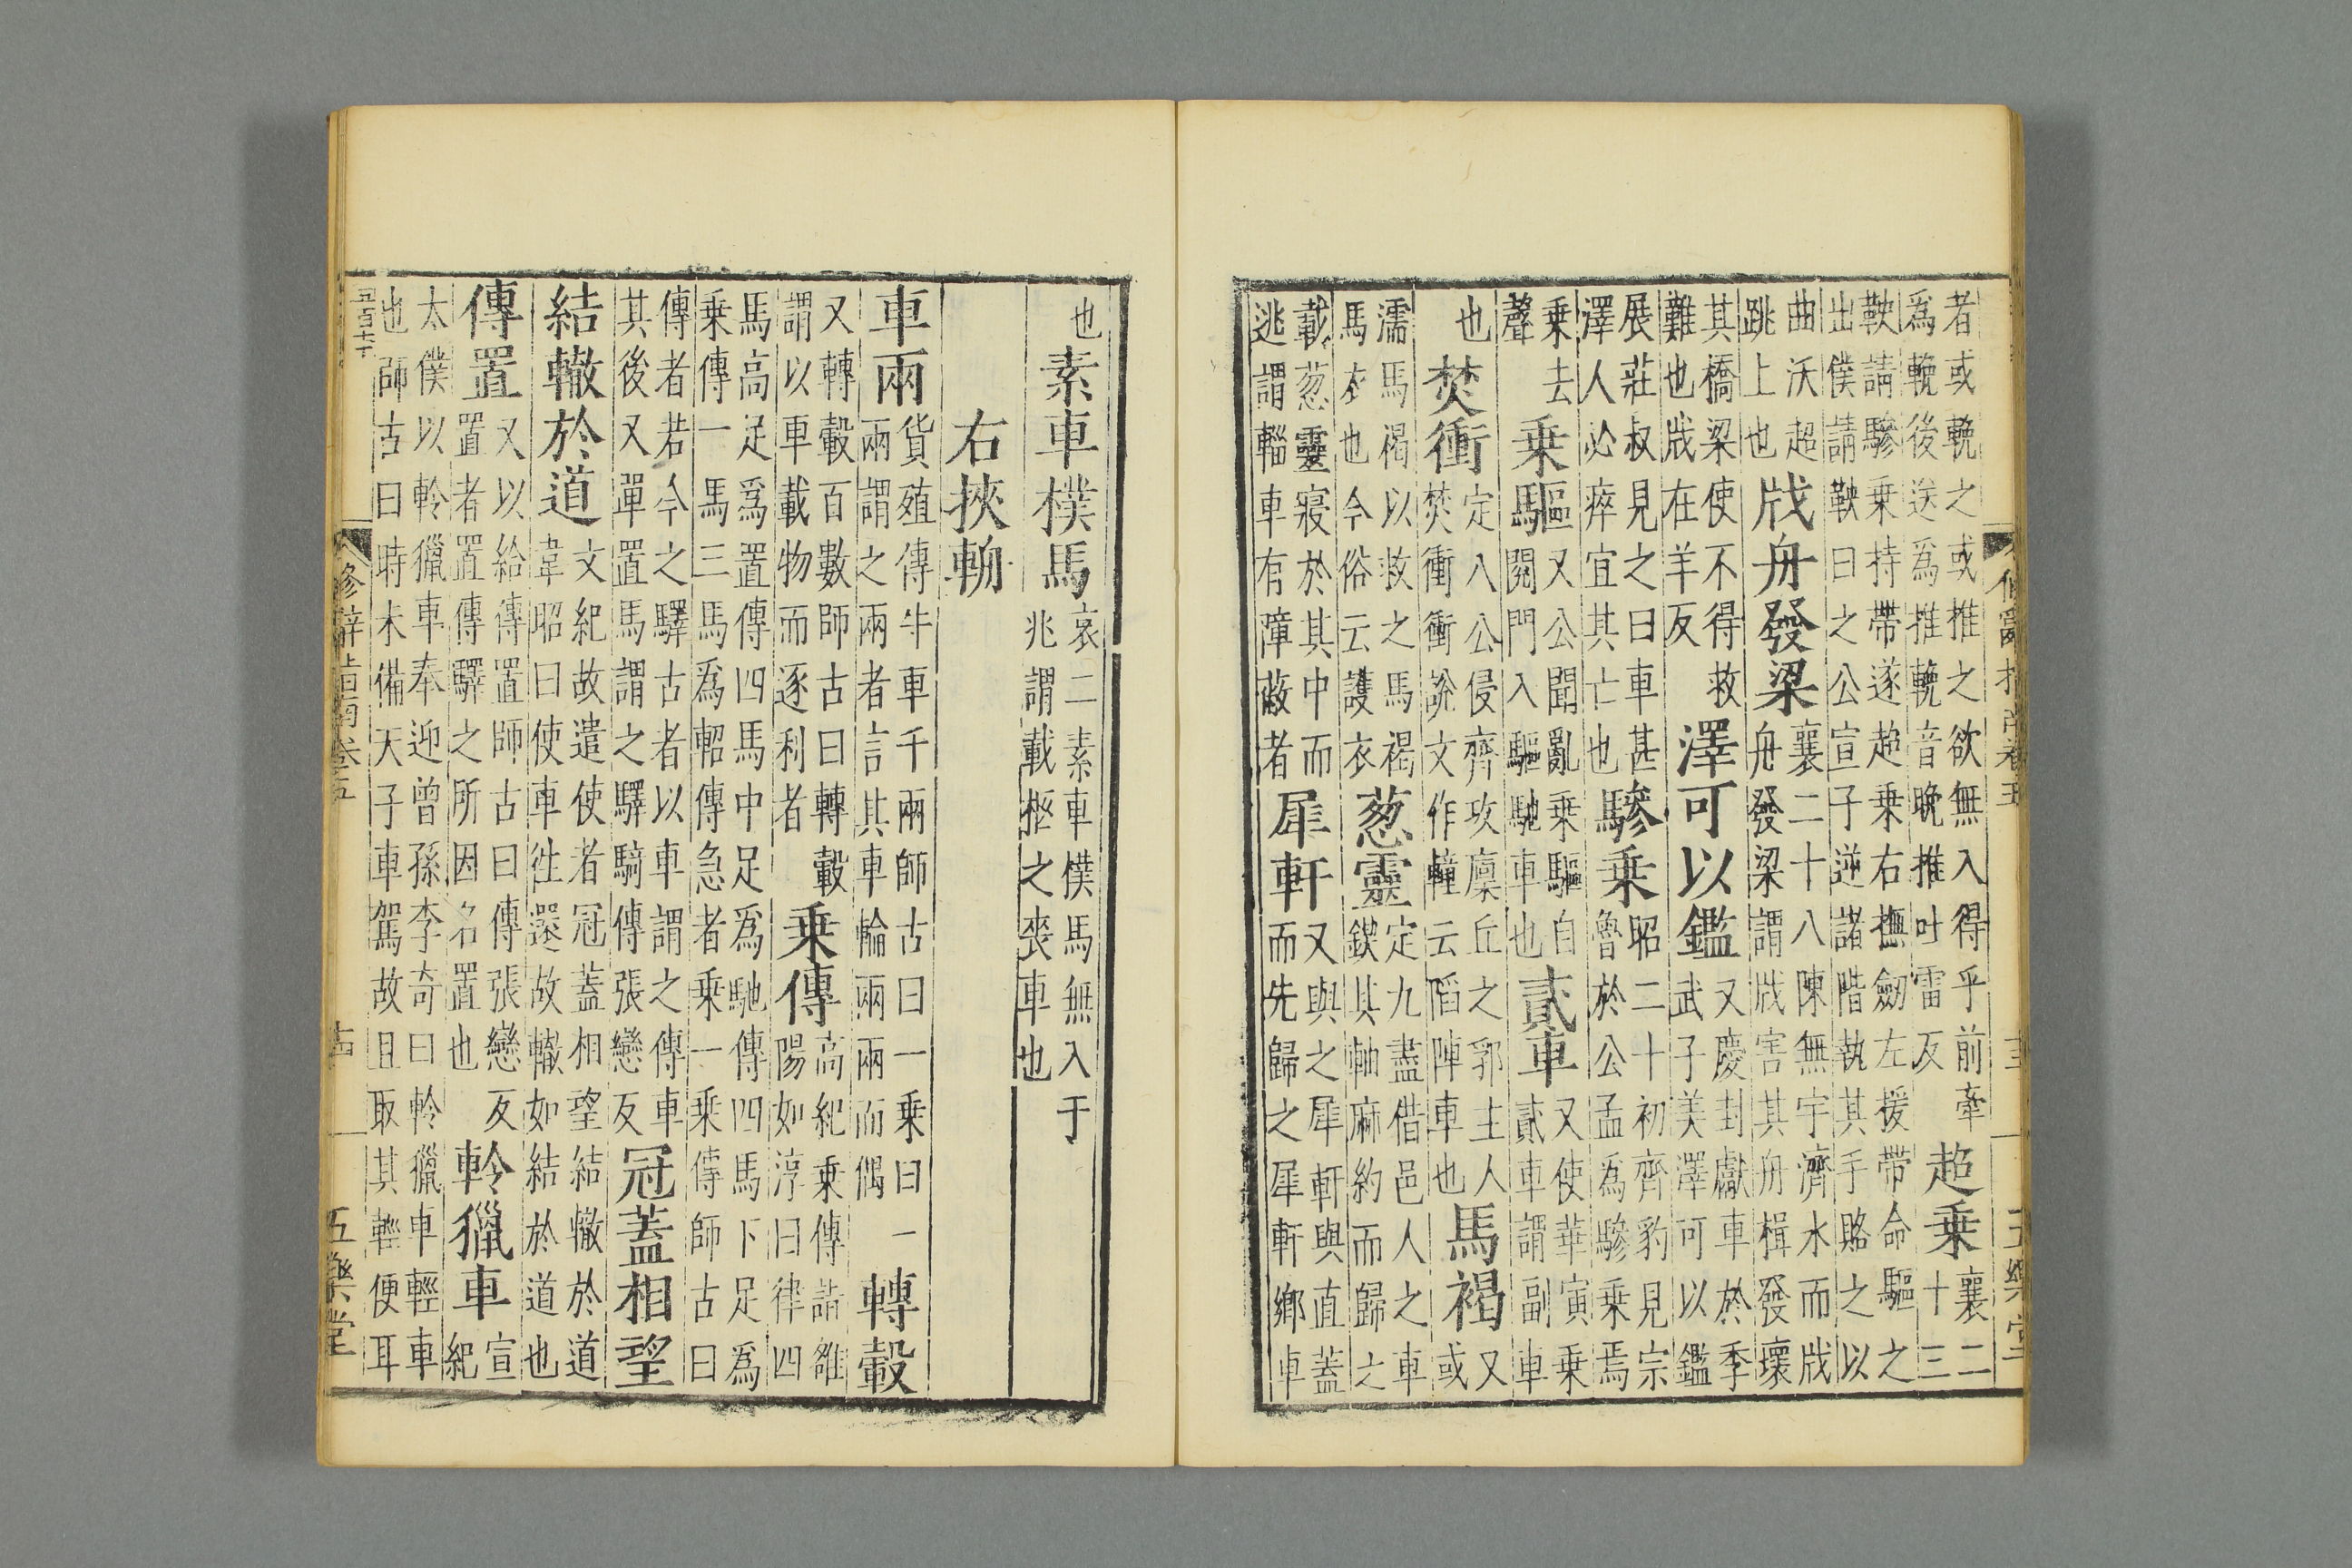 者或輓之或推之欲無入得乎前牽
爲輓後送爲推輓音晚推吐雷反
超乗
襄二
十三
鞅請驂乗持帶遂超乗右撫劒左援帶命驅之
出僕請鞅曰之公宣子逆諸階執其手賂之以
曲沃超
跳上也
戕舟發梁
襄二十八陳無宇濟水而戕
舟發梁謂戕害其舟楫發壞
其橋梁使不得救
難也戕在羊反
澤可以鑑
又慶封獻車於季
武子美澤可以鑑
展莊叔見之曰車甚
澤人必瘁宜其亡也
驂乗
昭二十初齊豹見宗
魯於公孟爲驂乗焉
乗去
聲
乗驅
又公聞亂乗驅自
閱門入驅馳車也
貳車
又使華寅乗
貳車謂副車
也
焚衝
定八公侵齊攻廩丘之郛主人
焚衝衝說文作䡴云䧟陣車也
馬褐
又
或
濡馬褐以救之馬褐
馬衣也今俗云護衣
葱靈
定九盡借邑人之車
鍥其軸麻約而歸之
載葱靈寢於其中而
逃謂輜車有障蔽者
犀軒
又與之犀軒與直蓋
而先歸之犀軒鄉車
也
素車樸馬
哀二素車樸馬無入于
兆謂載柩之喪車也
右挾輈
車兩
貨殖傳牛車千兩師古曰一乗曰一
兩謂之兩者言其車輪兩兩而偶
轉轂
又轉轂百數師古曰轉轂
謂以車載物而逐利者
乗傳
高紀乗傳詣雒
陽如淳曰律四
馬高足爲置傳四馬中足爲馳傳四馬下足爲
乗傳一馬三馬爲軺傳急者乗一乗傳師古曰
傳者若今之驛古者以車謂之傳車
其後又單置馬謂之驛騎傳張戀反
冠蓋相望
結轍於道
文紀故遣使者冠蓋相望結轍於道
韋昭曰使車往還故轍如結於道也
傳置
又以給傳置師古曰傳張戀反
置者置傳驛之所因名置也
軨獵車
宣
紀
太僕以軨獵車奉迎曾孫李奇曰軨獵車輕車
也師古曰時未備天子車駕故且取其輕便耳
修辭指南卷五
五樂堂